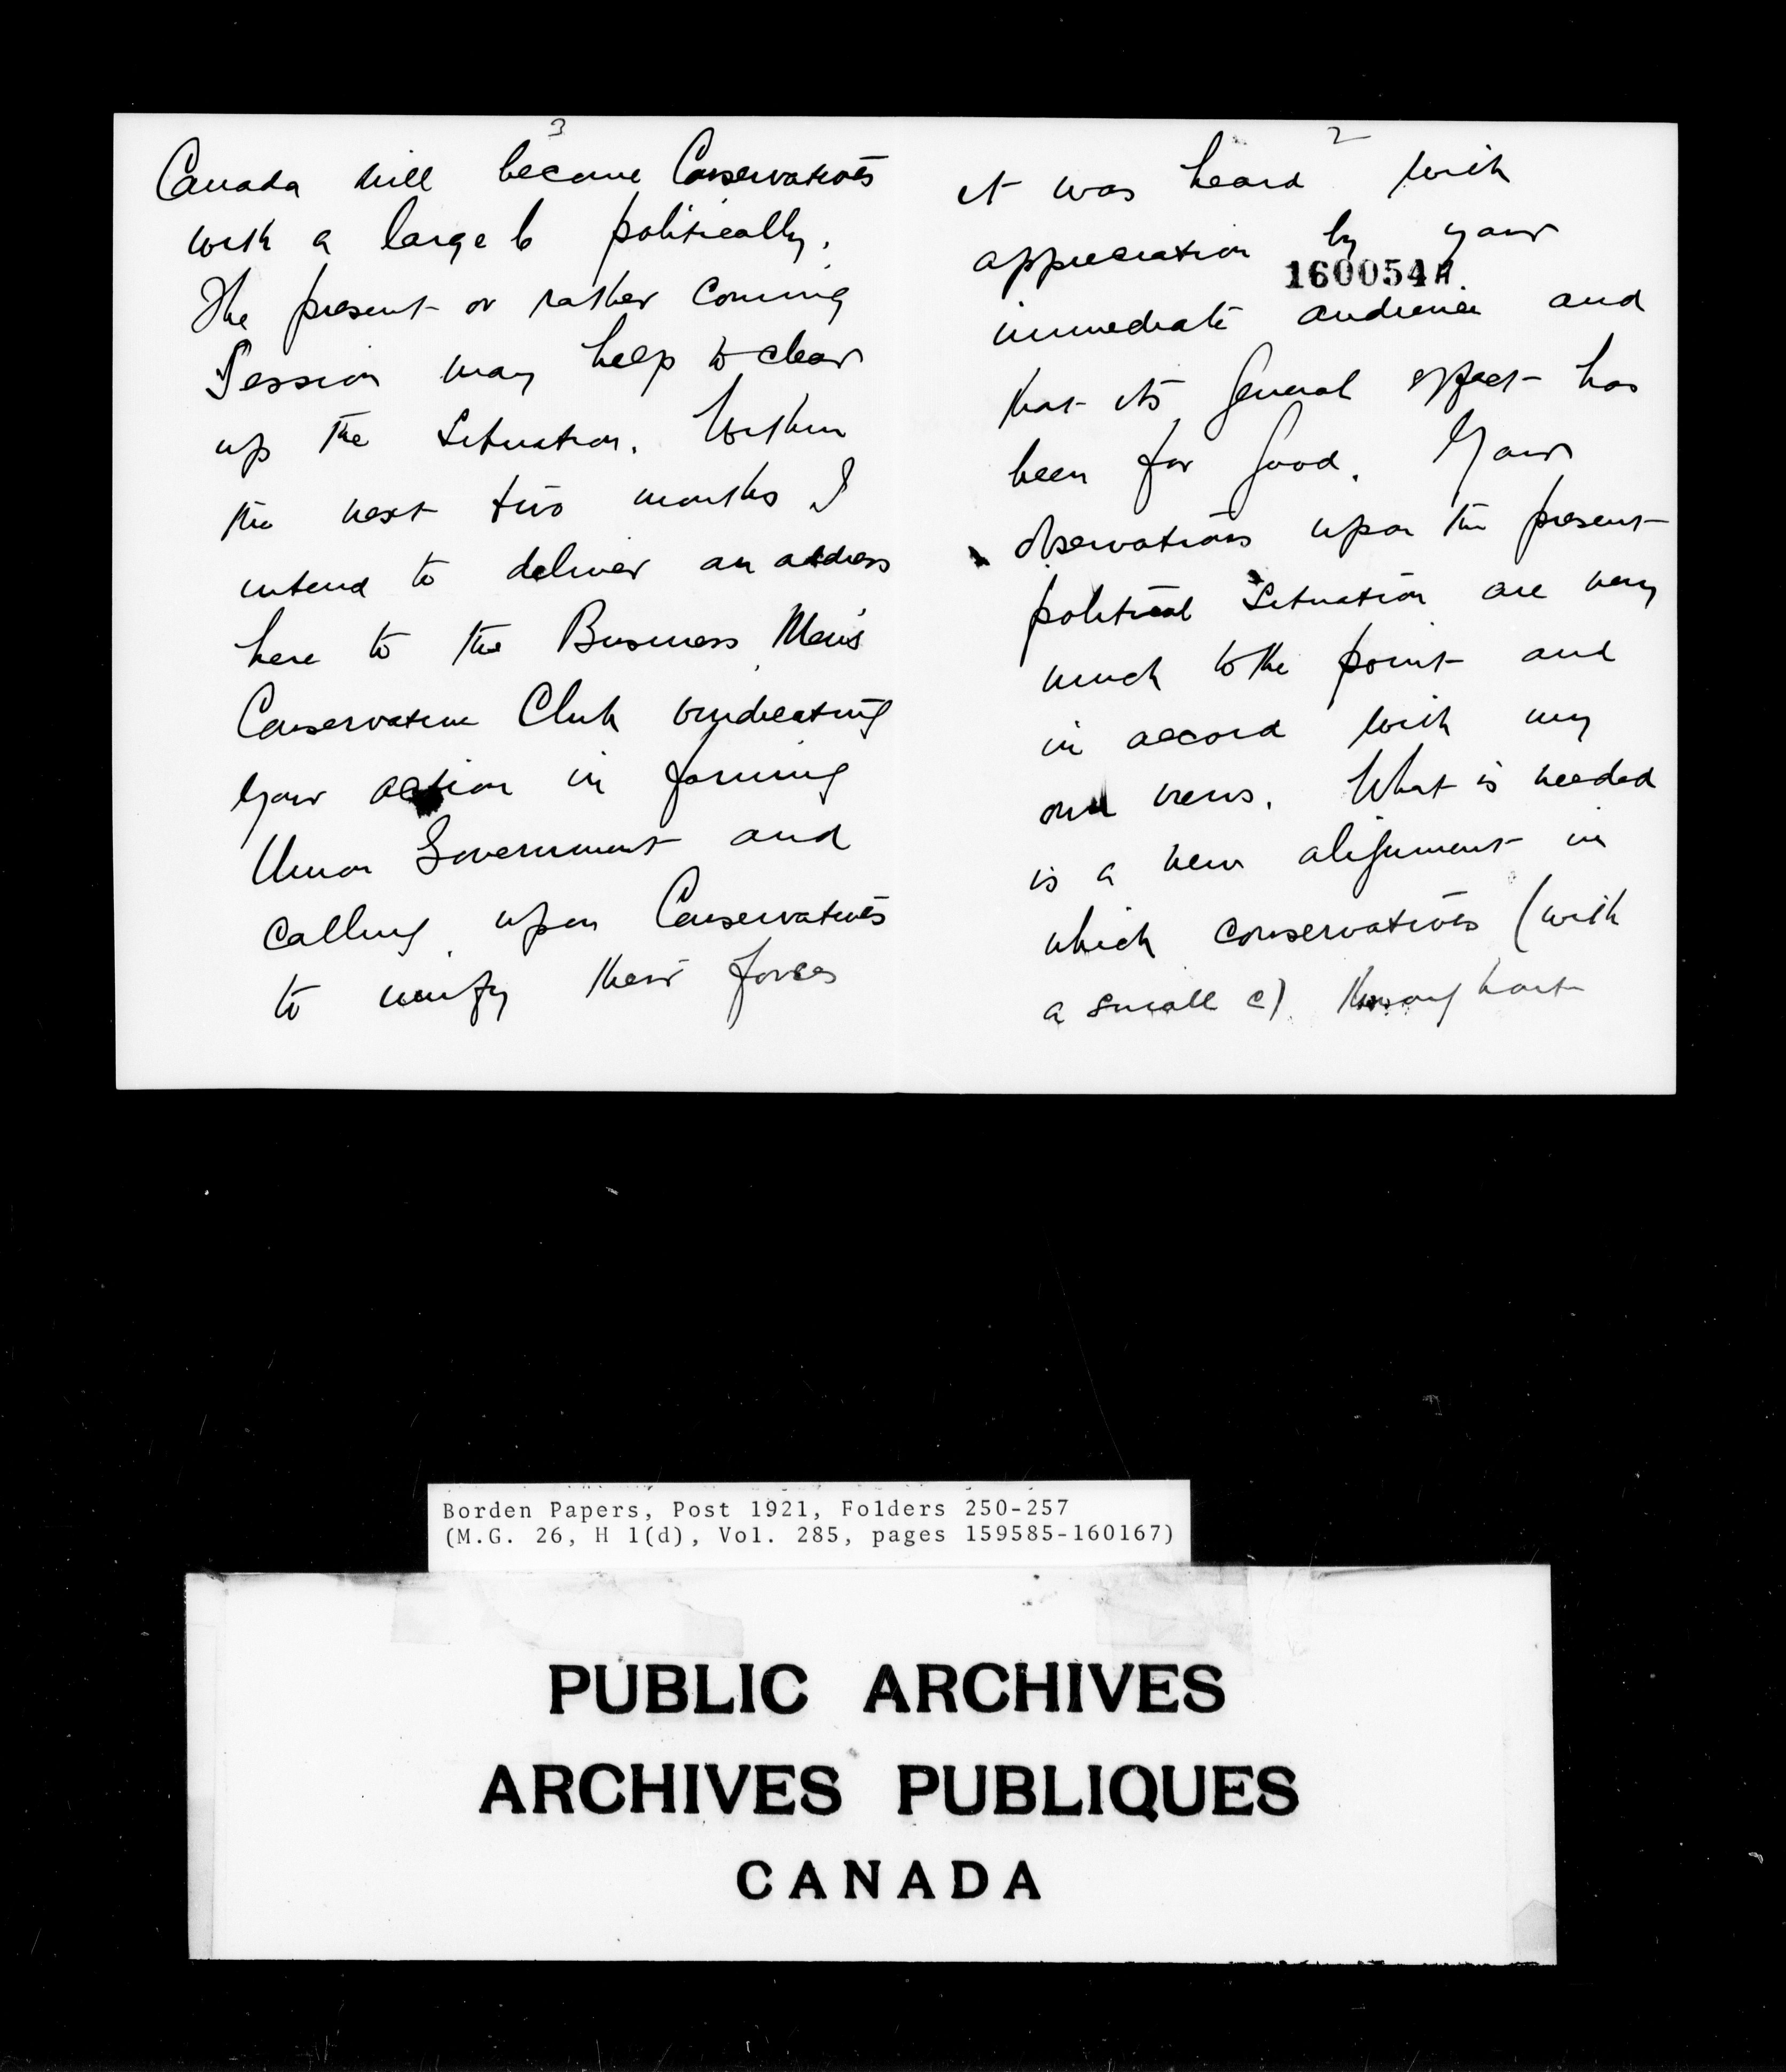 3
Canada will become Conservatives
with a large C politically.
The present or rather coming
Session may help to clear
up the Situation. Within
the next two months I
intend to deliver an address
here to the Business Men's
Conservative Club vindicating
your action in forming
Union Government and
calling upon Conservatives
to unify their forces
2
it was heard with
appreciation by your
160054A
immediate audience and
that its general effect has
been for good. Your
observations upon the present
political Situation are very
much to the point and
in accord with my
own views. What is needed
is a new alignment in
which conservatives (with
a small c) throughout
Borden Papers, Post 1921, Folders 250-257
(M.G. 26, H 1(d), Vol. 285, pages 159585-160167)
PUBLIC ARCHIVES
ARCHIVES PUBLIQUES
CANADA